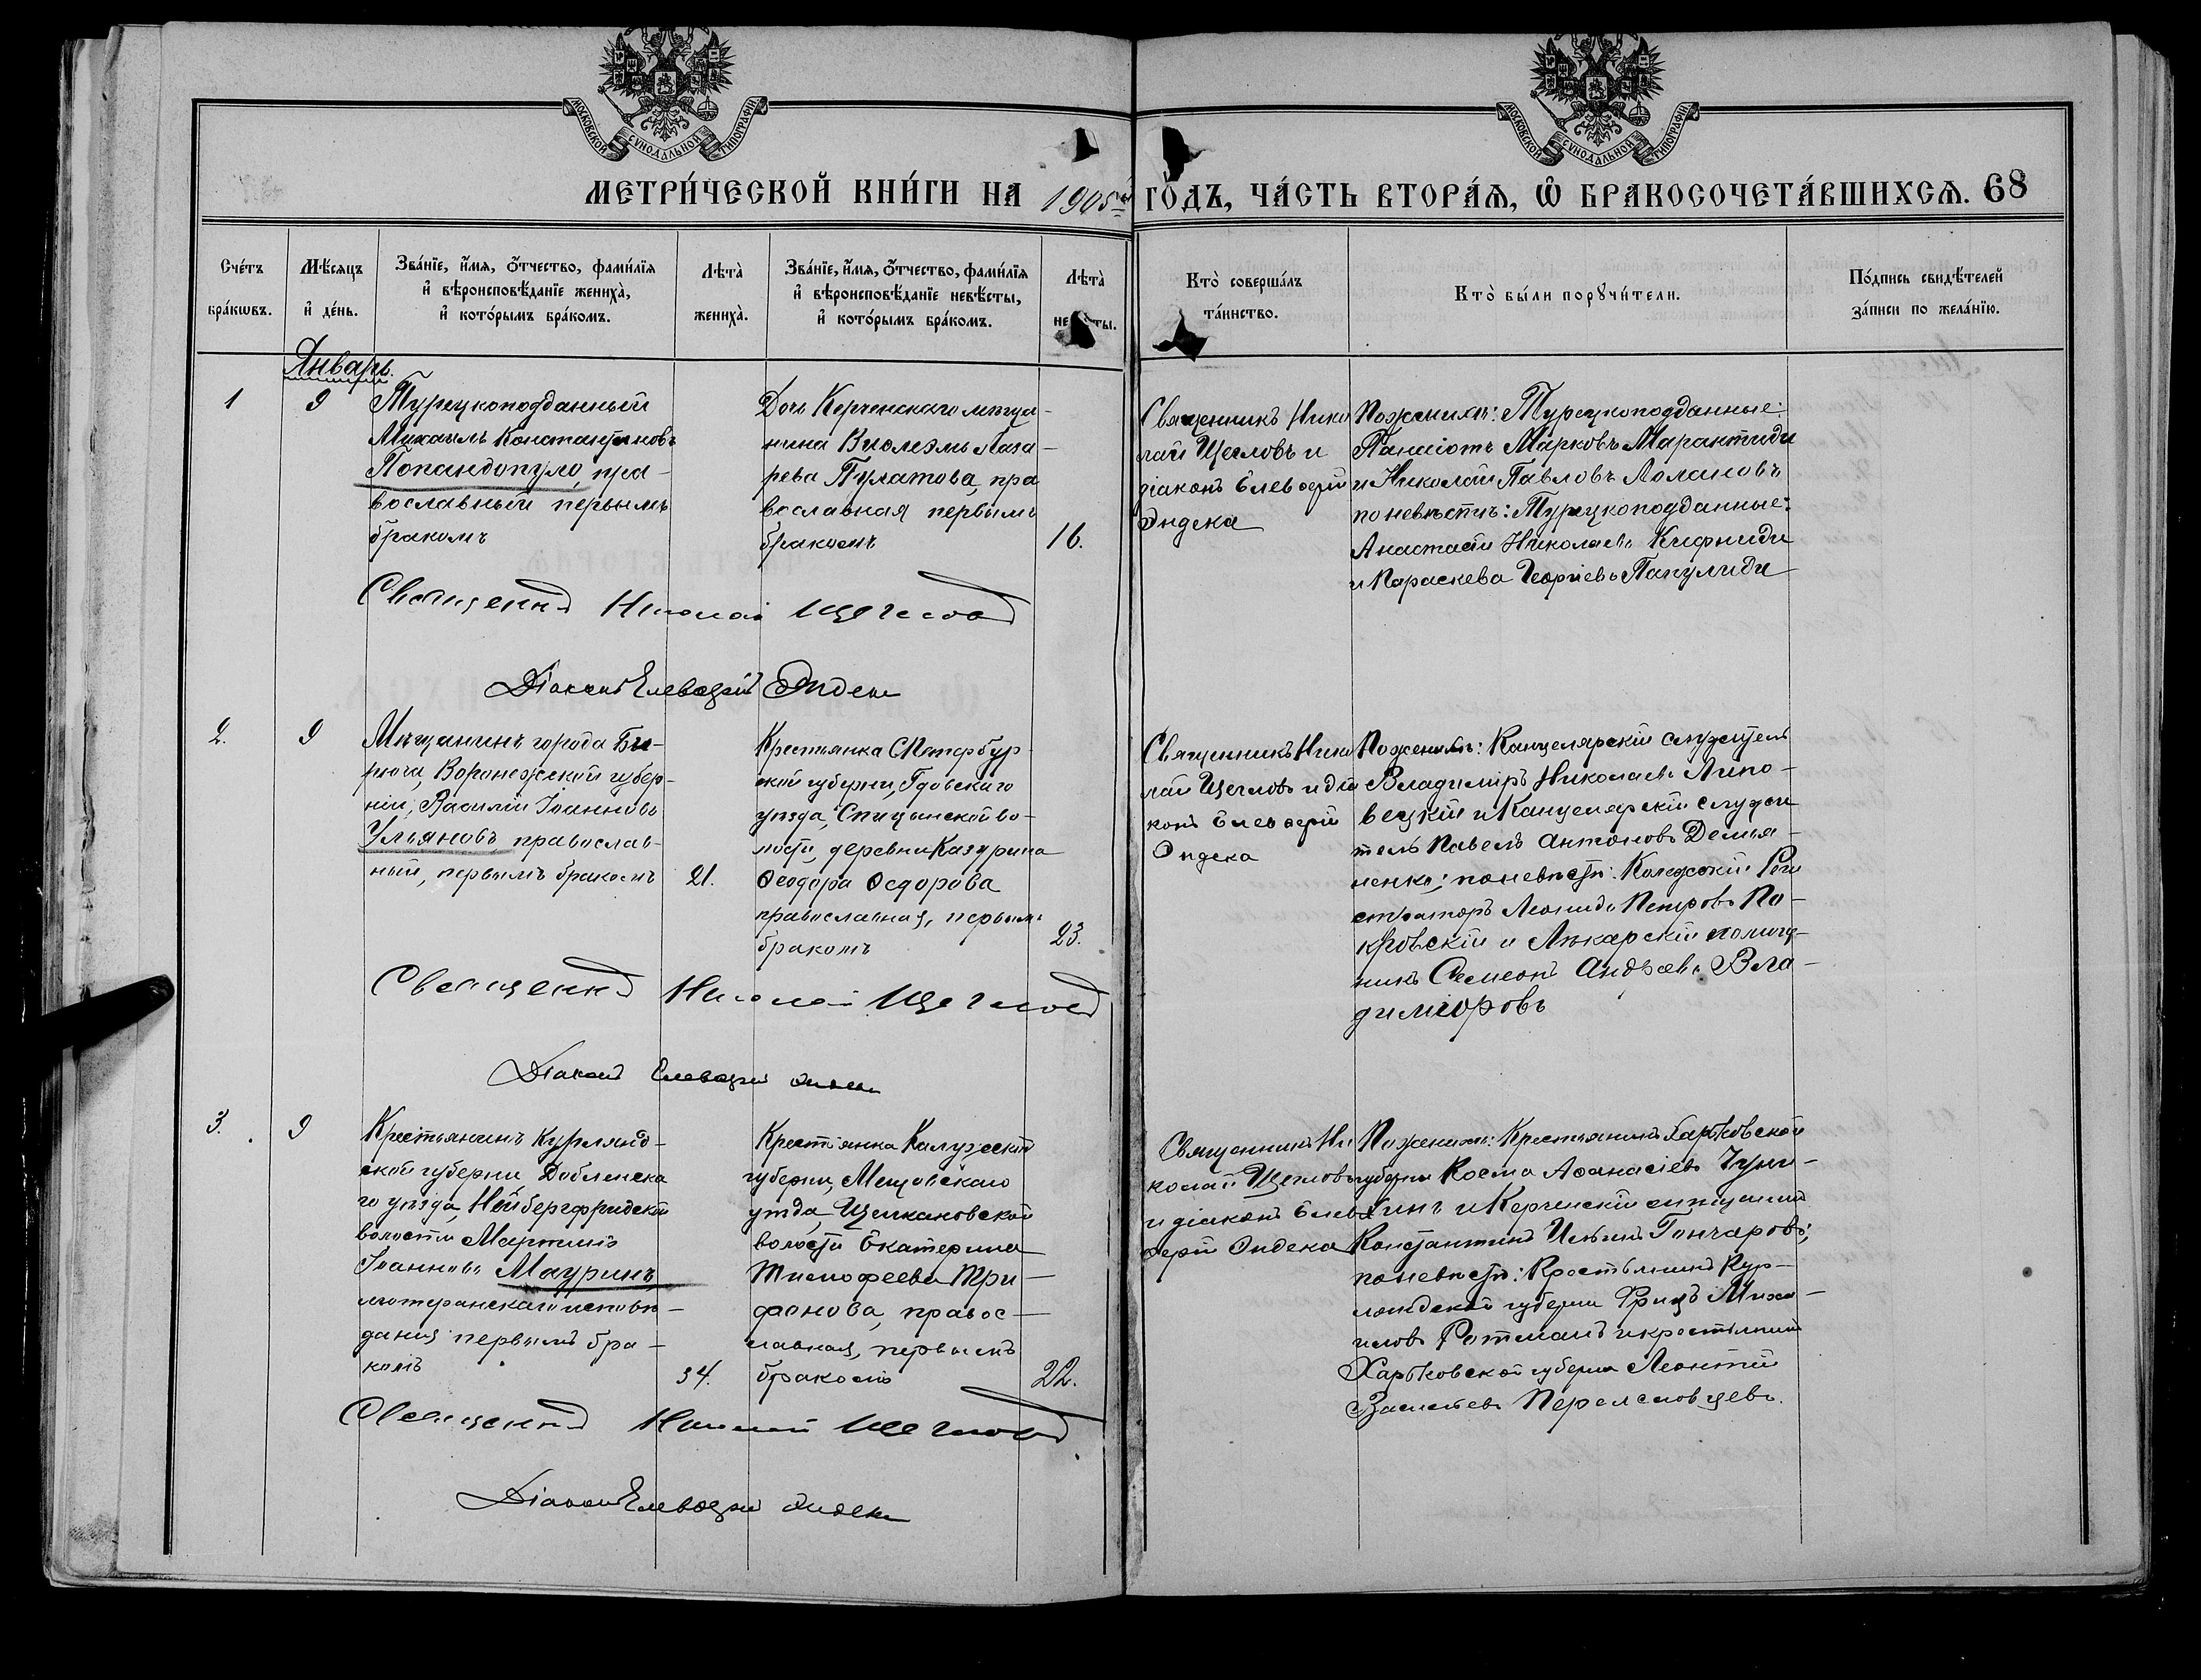 МОСКОВСКОЙ СѴНОДАЛЬНОЙ ТИПОГРАФІИ
МОСКОВСКОЙ СѴНОДАЛЬНОЙ ТИПОГРАФІИ
МЕТРИ́ЧЕСКОЙ КНИ́ГИ НА 1905 ГО́ДЪ, ЧА́СТЬ ВТОРА́Ѧ, Ѽ БРАКОСОЧЕТА́ВШИХСѦ. 68
Сче́тъ бра́кѡвъ.
Мѣ́сѧцъ и҆ де́нь.
Зва́нїе, и҆́мѧ, ѻ҆́тчество, фами́лїѧ
и҆ вѣроисповѣ́данїе жениха̀,
и҆ кото́рымъ бра́комъ.
Лѣта̀ жениха̀.
Зва́нїе, и҆́мѧ, ѻ҆́тчество, фами́лїѧ
и҆ вѣроисповѣ́данїе невѣ́сты,
и҆ кото́рымъ бра́комъ.
Лѣта̀
Кто̀ соверша́лъ
та́инство.
Кто̀ бы́ли порꙋчи́тели.
По́дпись свидѣ́телей
за́писи по жела́нїю.
Январь.
1
9
Турецкоподданный
Михаилъ Константиновъ
Попандопуло, пра-
вославный первымъ
бракомъ
Дочь Керченскаго мѣща-
нина Виолеэмь Лаза-
рева Пулатова, пра
вославная первымъ
бракомъ
16.
Священникъ Нико
лай Щегловъ и
діаконъ Елевѳерій
Индека
По женихѣ: Турецкоподданные:
Панаіотъ Марковъ Марантиди
и Николай Павловъ Аслановъ
по невѣстѣ: Турецкоподданные:
Анастасій Николаевъ Кифниди
и Параскева Георгіева Папулиди
Священникъ Николай Щегловъ
Діаконъ Елевѳерій Индека
2.
9
Мѣщанинъ города Би-
рюча, Воронежской губер-
ніи, Василій Іоанновъ
Ульяновъ православ-
ный, первымъ бракомъ
21.
Крестьянка СПетербур
ской губерніи, Гдовскаго
уѣзда, Спицынской во-
лости, деревни Казурина
Ѳеодора Ѳедорова
православная, первымъ
бракомъ
23.
Священникъ Нико
лай Щегловъ и діа
конъ Елевѳерій
Индека
По женихѣ: Канцелярскій служитель
Владиміръ Николаевъ Липо-
вецкій и Канцелярскій служи
тель Павелъ Антоновъ Демья-
ненко; по невѣстѣ: Колежскій Реги
страторъ Леонидъ Петровъ По-
кровскій и Лѣкарскій помощ-
никъ Семеонъ Андреевъ Вла-
диміровъ
Священникъ Николай Щегловъ
Діаконъ Елевѳерій Индека
3.
9
Крестьянинъ Курлянд-
ской губерніи, Добленска
го уѣзда, Нейбергфридской
волости Мартинъ
Іоанновъ Мауринъ,
лютеранскаго исповѣ-
данія первымъ бра-
комъ
34.
Крестьянка Калужской
губерніи, Мещовскаго
уѣзда, Щелкановской
волости Екатерина
Тимофеева Три-
фонова, правос-
лавная, первымъ
бракомъ
22.
Священникъ Ни
колай Щегловъ
и діаконъ Елев
ѳерій Индека
По женихѣ: Крестьянинъ Харьковской
губерніи Косма Аѳанасіевъ Чуни-
хинъ и Керченскій мѣщанинъ
Константинъ Ильинъ Гончаровъ;
по невѣстѣ: Крестьянинъ Кур-
ляндской губерніи Фрицъ Миха-
иловъ Ротманъ и крестьянинъ
Харьковской губерніи Леонтій
Васильевъ
Священникъ Николай Щегловъ
Діаконъ Елевѳерій Индека